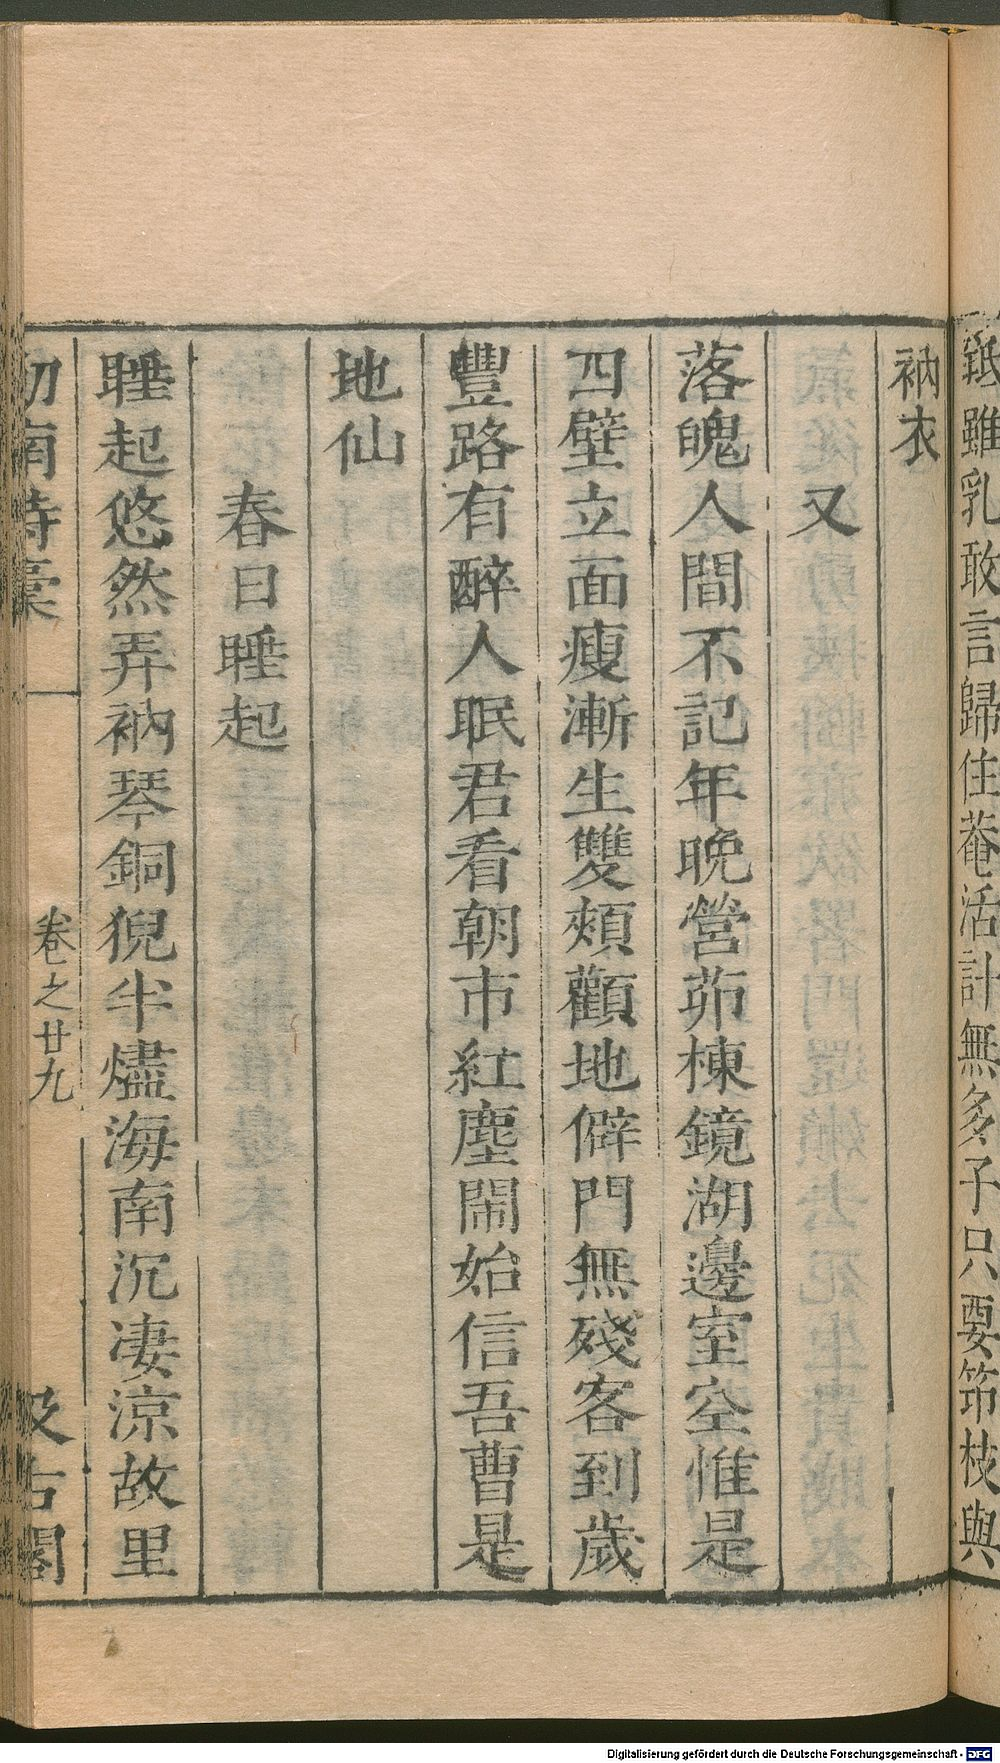 羝雖乳敢言歸住菴活計無多子只要笻枝與
衲衣
又
落魄人間不記年晚營茆棟鏡湖邊室空惟是
四壁立面瘦漸生雙頰顴地僻門無殘客到歲
豐路有醉人眠君看朝市紅塵閙始信吾曹是
地仙
春日睡起
睡起悠然弄衲琴銅猊半燼海南沉凄涼故里
劒南詩藁
卷之廿九
汲古閣
Digitalisierung gefördert durch die Deutsche Forschungsgemeinschaft - DFG